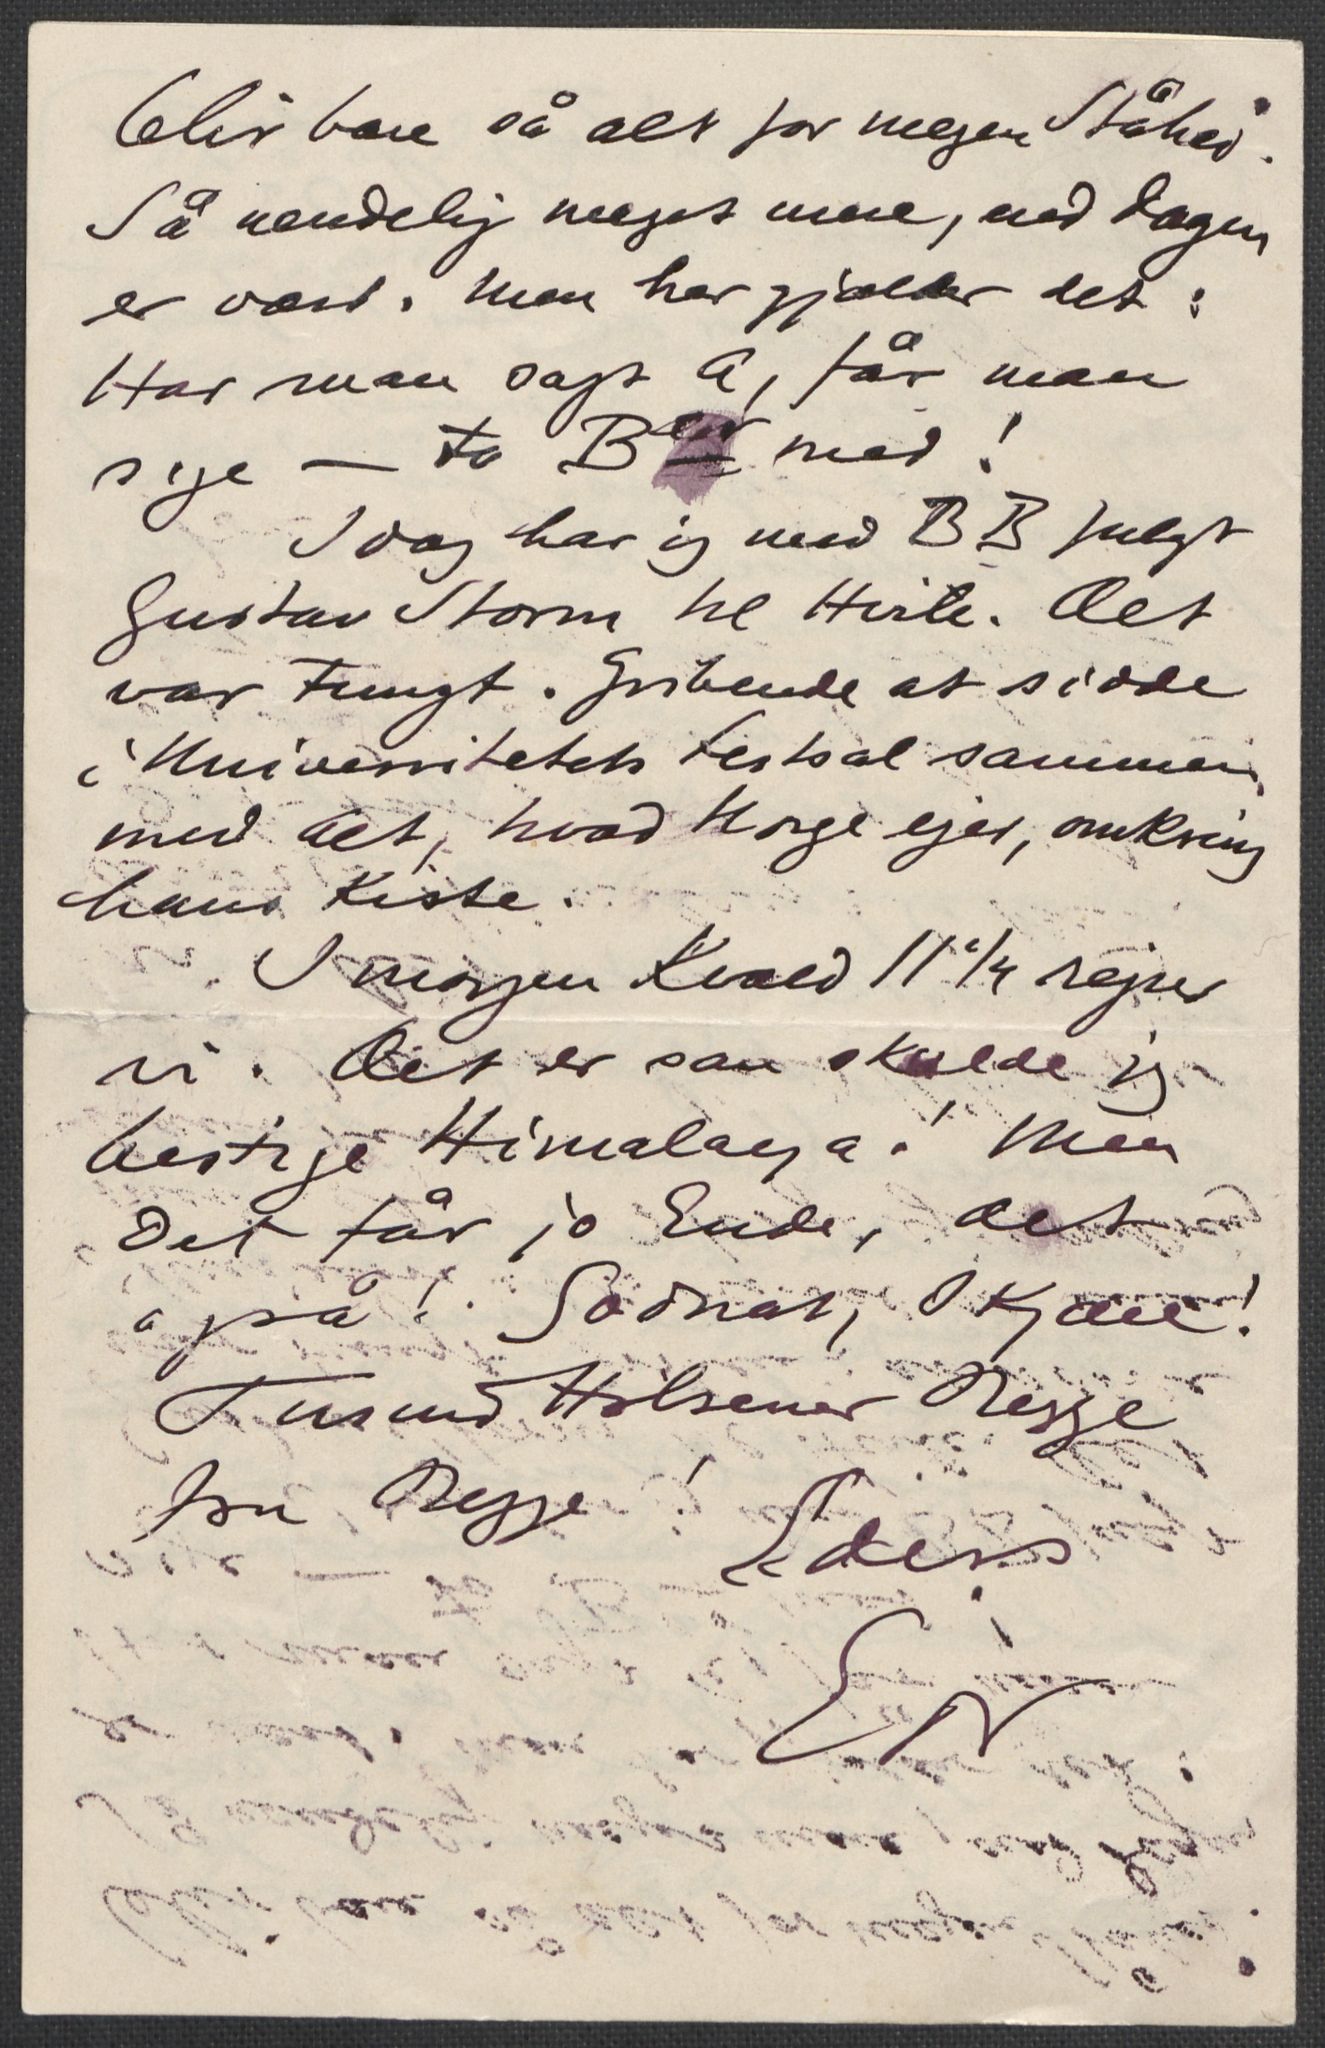 blir bare så alt for megen Ståhej.
Så uendelig meget mere, end Dagen
er værd. Men her gjælder det:
Har man sagt A, får man
sige — to B'er med!
Idag har jeg med BB fulgt
Gustav Storm til Hvile. Det
var tungt. Gribende at sidde
i Universitetets Festsal sammen
med Alt, hvad Norge ejer, omkring
hans Kiste.
Imorgen Kvæld 11 1/4 rejser
vi. Det er som skulde jeg
bestige Himalaya! Men
Det får jo Ende, det
også! Godnat, I Kjære!
Tusind Hilsener Begge
fra Begge!
Eders
EG